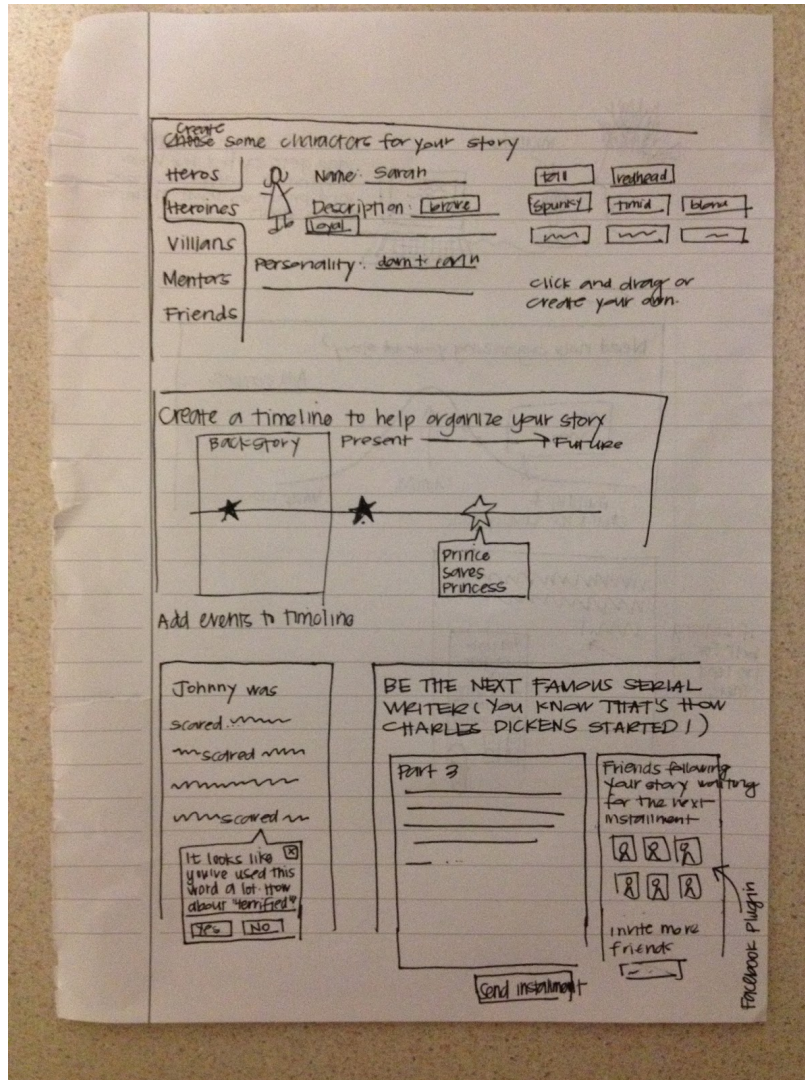 Create
Choose some characters for your story
Heros
Heroines
Villians
Mentors
Friends
Name: Sarah
Description: brave
loyal
Personality: down t earth
tall redhead
spunky timid blonde
click and drag or
create your own.
Create a timeline to help organize your story
Backstory Present Future
Prince
saves
Princess
Add events to timeline
Johnny was
scared
scared
scared
It looks like x
you've used this
word a lot. How
about "terrified"?
Yes NO
BE THE NEXT FAMOUS SERIAL
WRITER (YOU KNOW THAT'S HOW
CHARLES DICKENS STARTED!)
Part 3
Send installment
Friends following
your story waiting
for the next
installment
Invite more
friends
Facebook Plugin